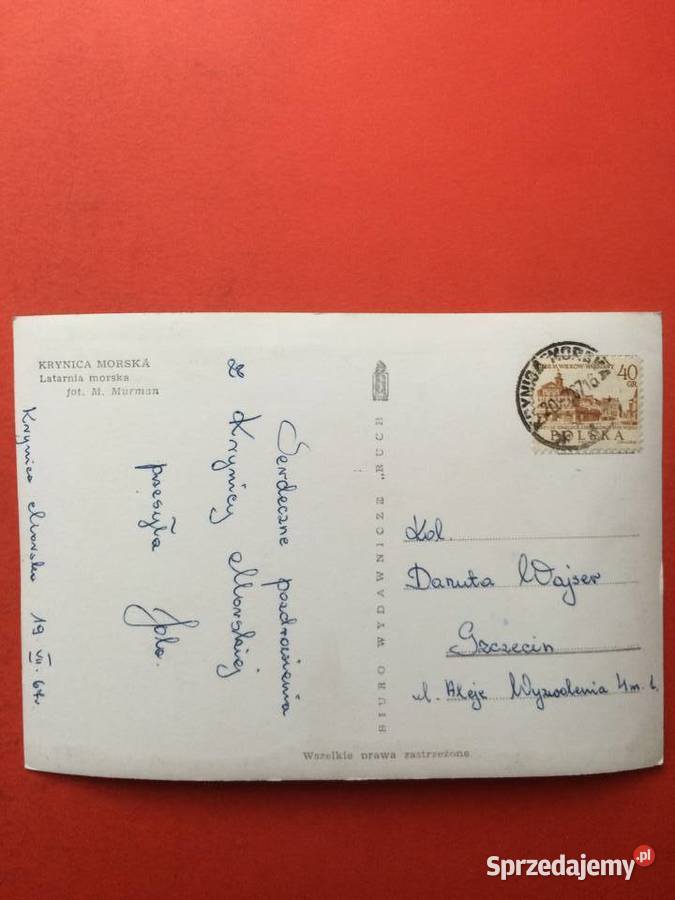 KRYNICA MORSKA
Latarnia morska
fot. M. Murman
Serdeczne pozdrowienia
z Krynicy Morskiej
przesyła
Jola.
Krynica Morska 19 VII. 67r.
BIURO WYDAWNICZE „RUCH"
KRYNICA MORSKA
40
GR
POLSKA
Kol.
Danuta Wajser
Szczecin
ul. Aleje Wyzwolenia 4 m.
Wszelkie prawa zastrzeżone
Sprzedajemy.pl